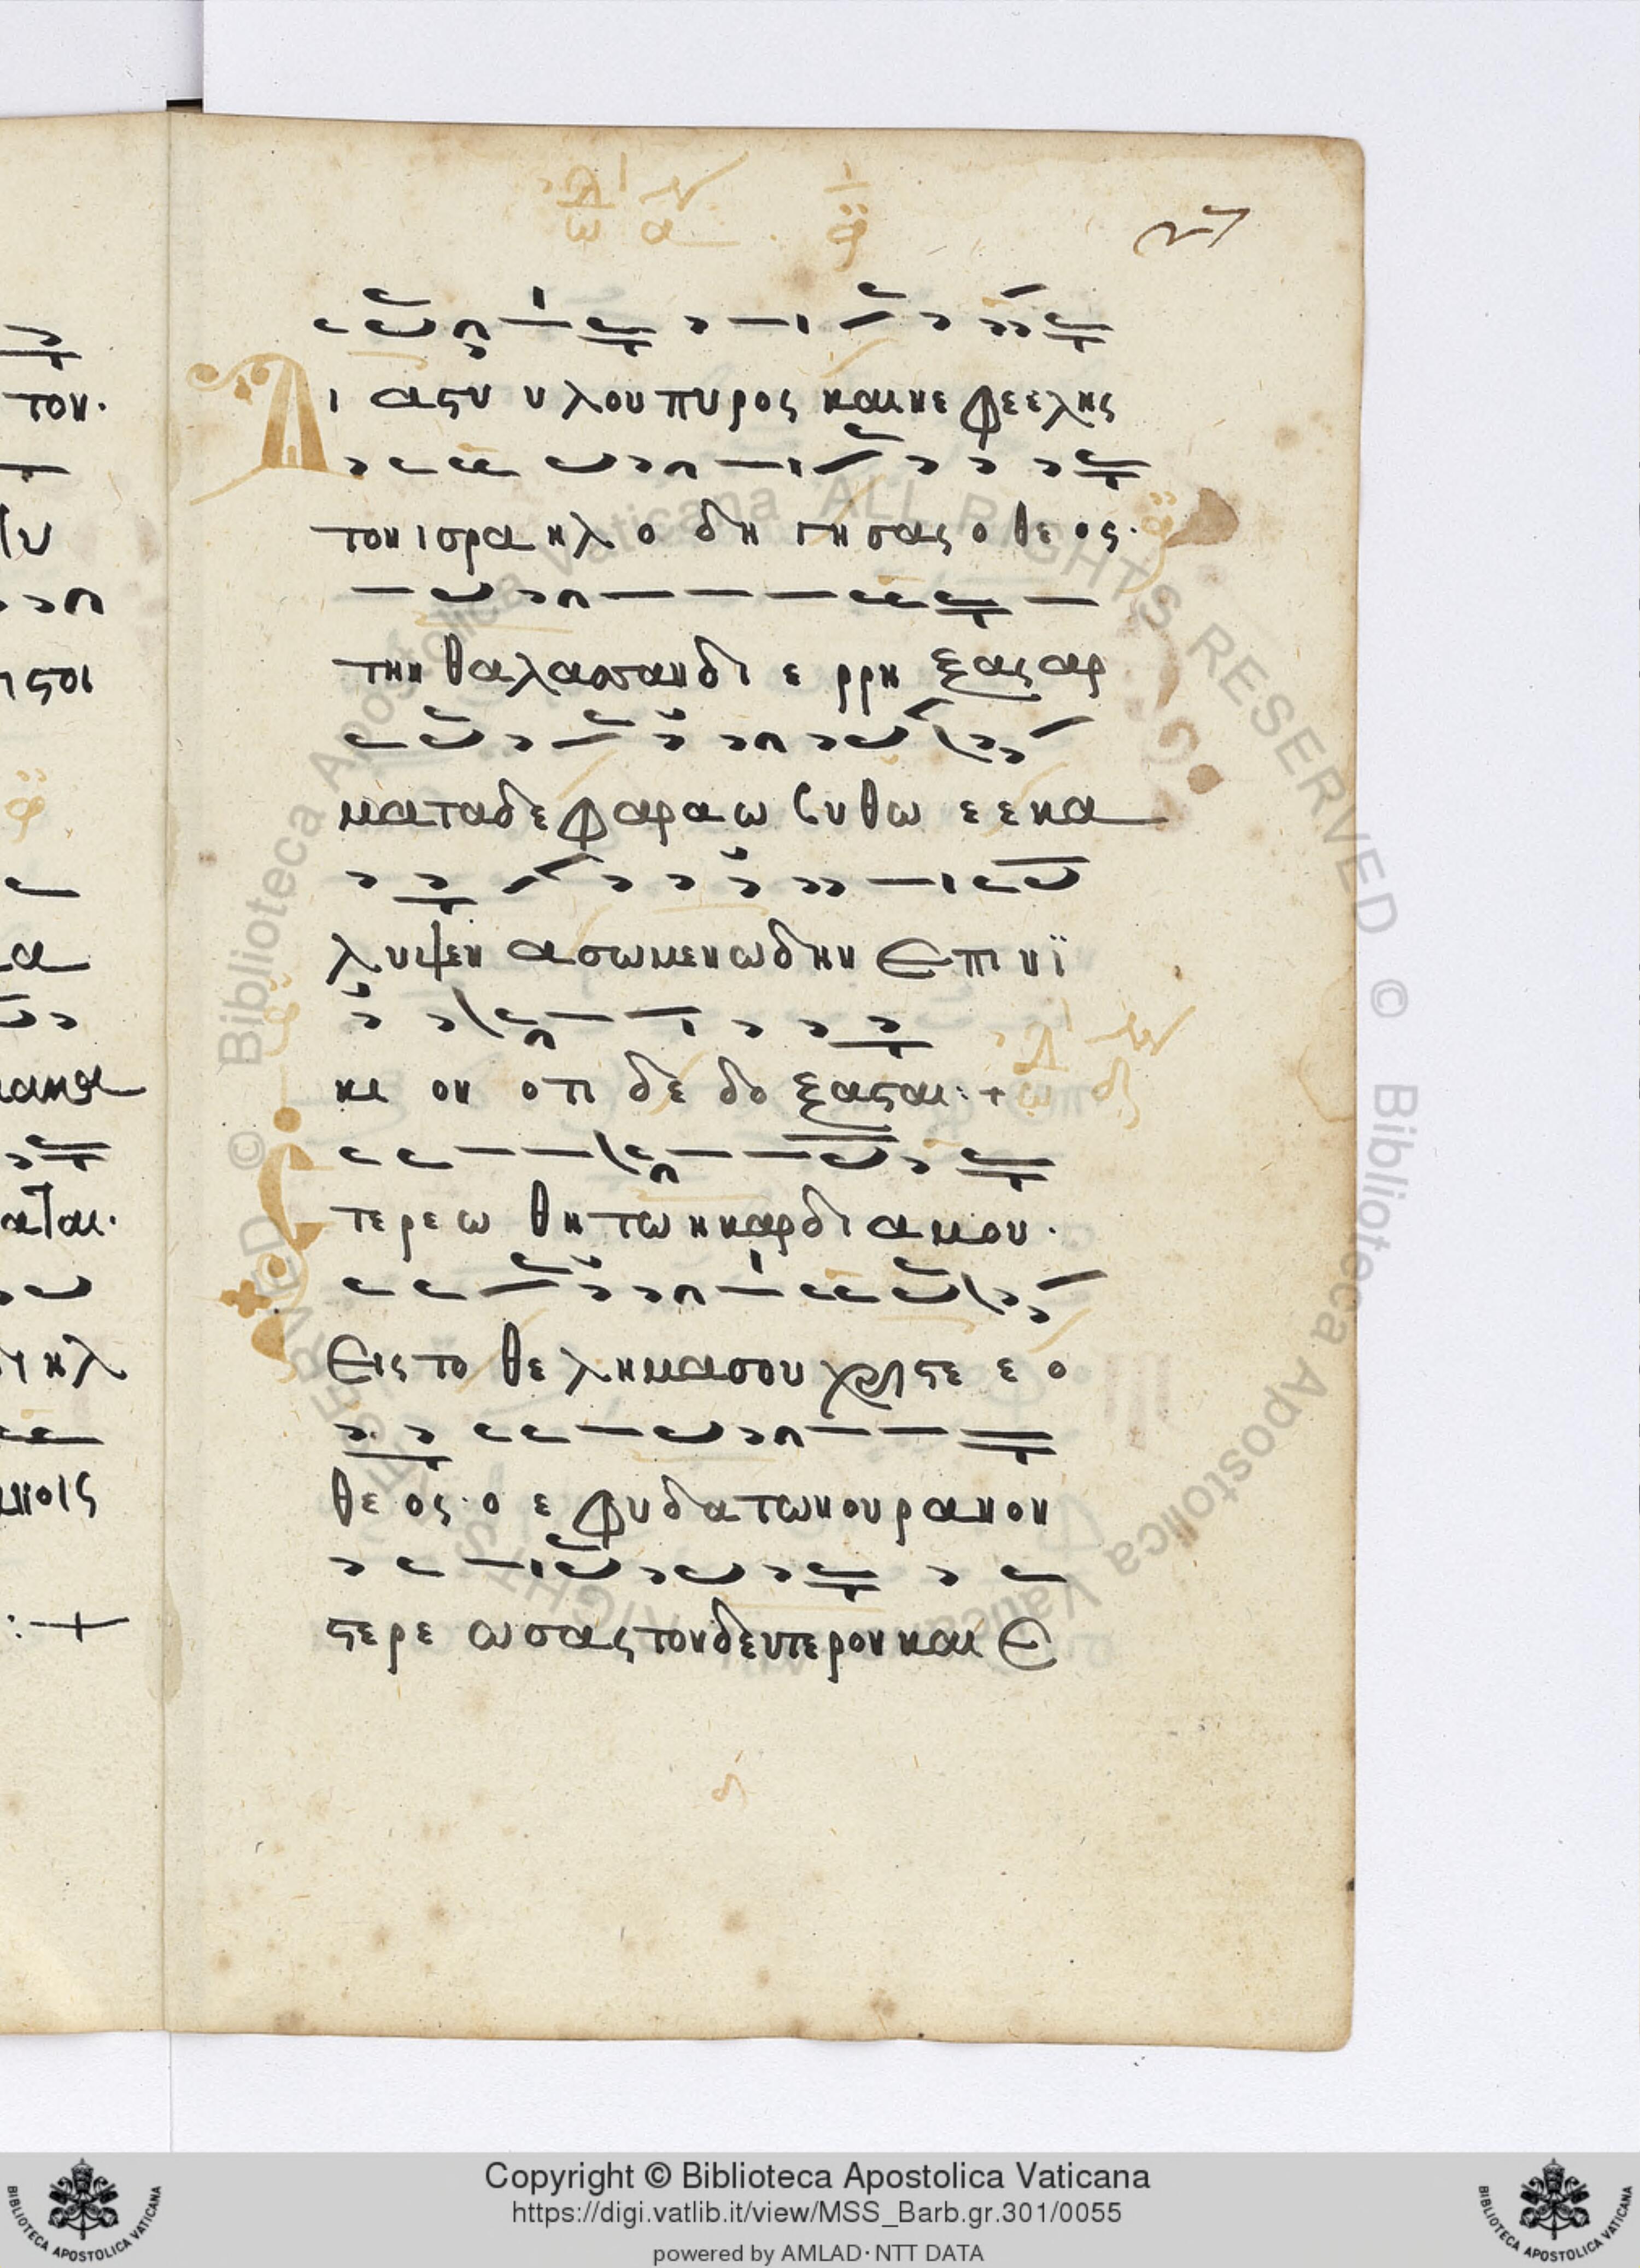 Δι α ςυ υ λου πυρος και νε φε ε λης
τον ισρα ηλ ο δη γη σας ο θε ος·
την θαλασσαν δι ε ρρη ξας αρ
ματα δε φαραω βυθω ε ε κα
λυψεν ασωμεν ωδην επι νϊ
κι ον οτι δε δο ξασαι:+
ςτερεω θητω η καρδια μου·
Εις το θε λημα σου χριςτε ε ο
θε ος· ο ε φ υδατων ουρανον
ςερε ωσας τον δευτερον και ε
τον·
ςοι
ηλ
Copyright © Biblioteca Apostolica Vaticana
https://digi.vatlib.it/view/MSS_Barb.gr.301/0055
powered by AMLAD·NTT DATA
BIBLIOTECA APOSTOLICA VATICANA
BIBLIOTECA APOSTOLICA VATICANA
© Biblioteca Apostolica Vaticana ALL RIGHTS RESERVED
© Biblioteca Apostolica Vaticana ALL RIGHTS RESERVED